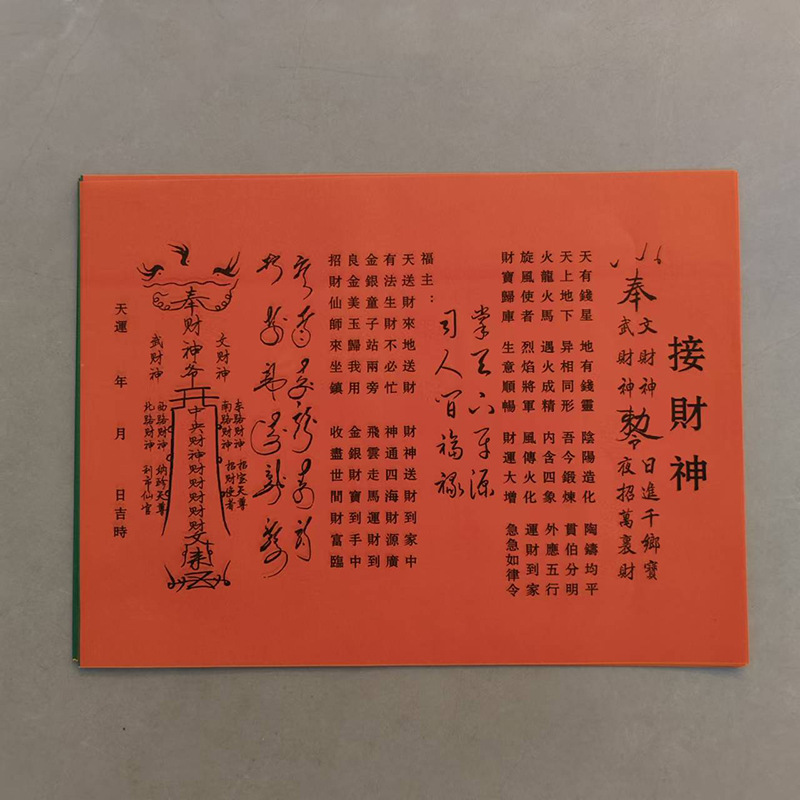 接財神
奉
文財神
武財神
日進千鄉寶
夜招萬裏財
天有錢星 地有錢靈 陰陽造化 陶鑄均平
天上地下 异相同形 吾今鍛煉 貫伯分明
火龍火馬 遇火成精 内含四象 外應五行
旋風使者 烈焰將軍 風傳火化 運財到家
財寶歸庫 生意順暢 財運大增 急急如律令
掌天下財源
司人間福祿
福主：
天送財來地送財 財神送財到家中
有法生財不必忙 神通四海財源廣
金銀童子站兩旁 飛雲走馬運財到
良金美玉歸我用 金銀財寶到手中
招財仙師來坐鎮 收盡世間財富臨
奉財神爷
文財神
武財神
中央财神财财财财
东路财神 招宝天尊
南路財神 招財使者
西路财神 纳珍天尊
北路财神 利市仙官
天運 年 月 日吉時